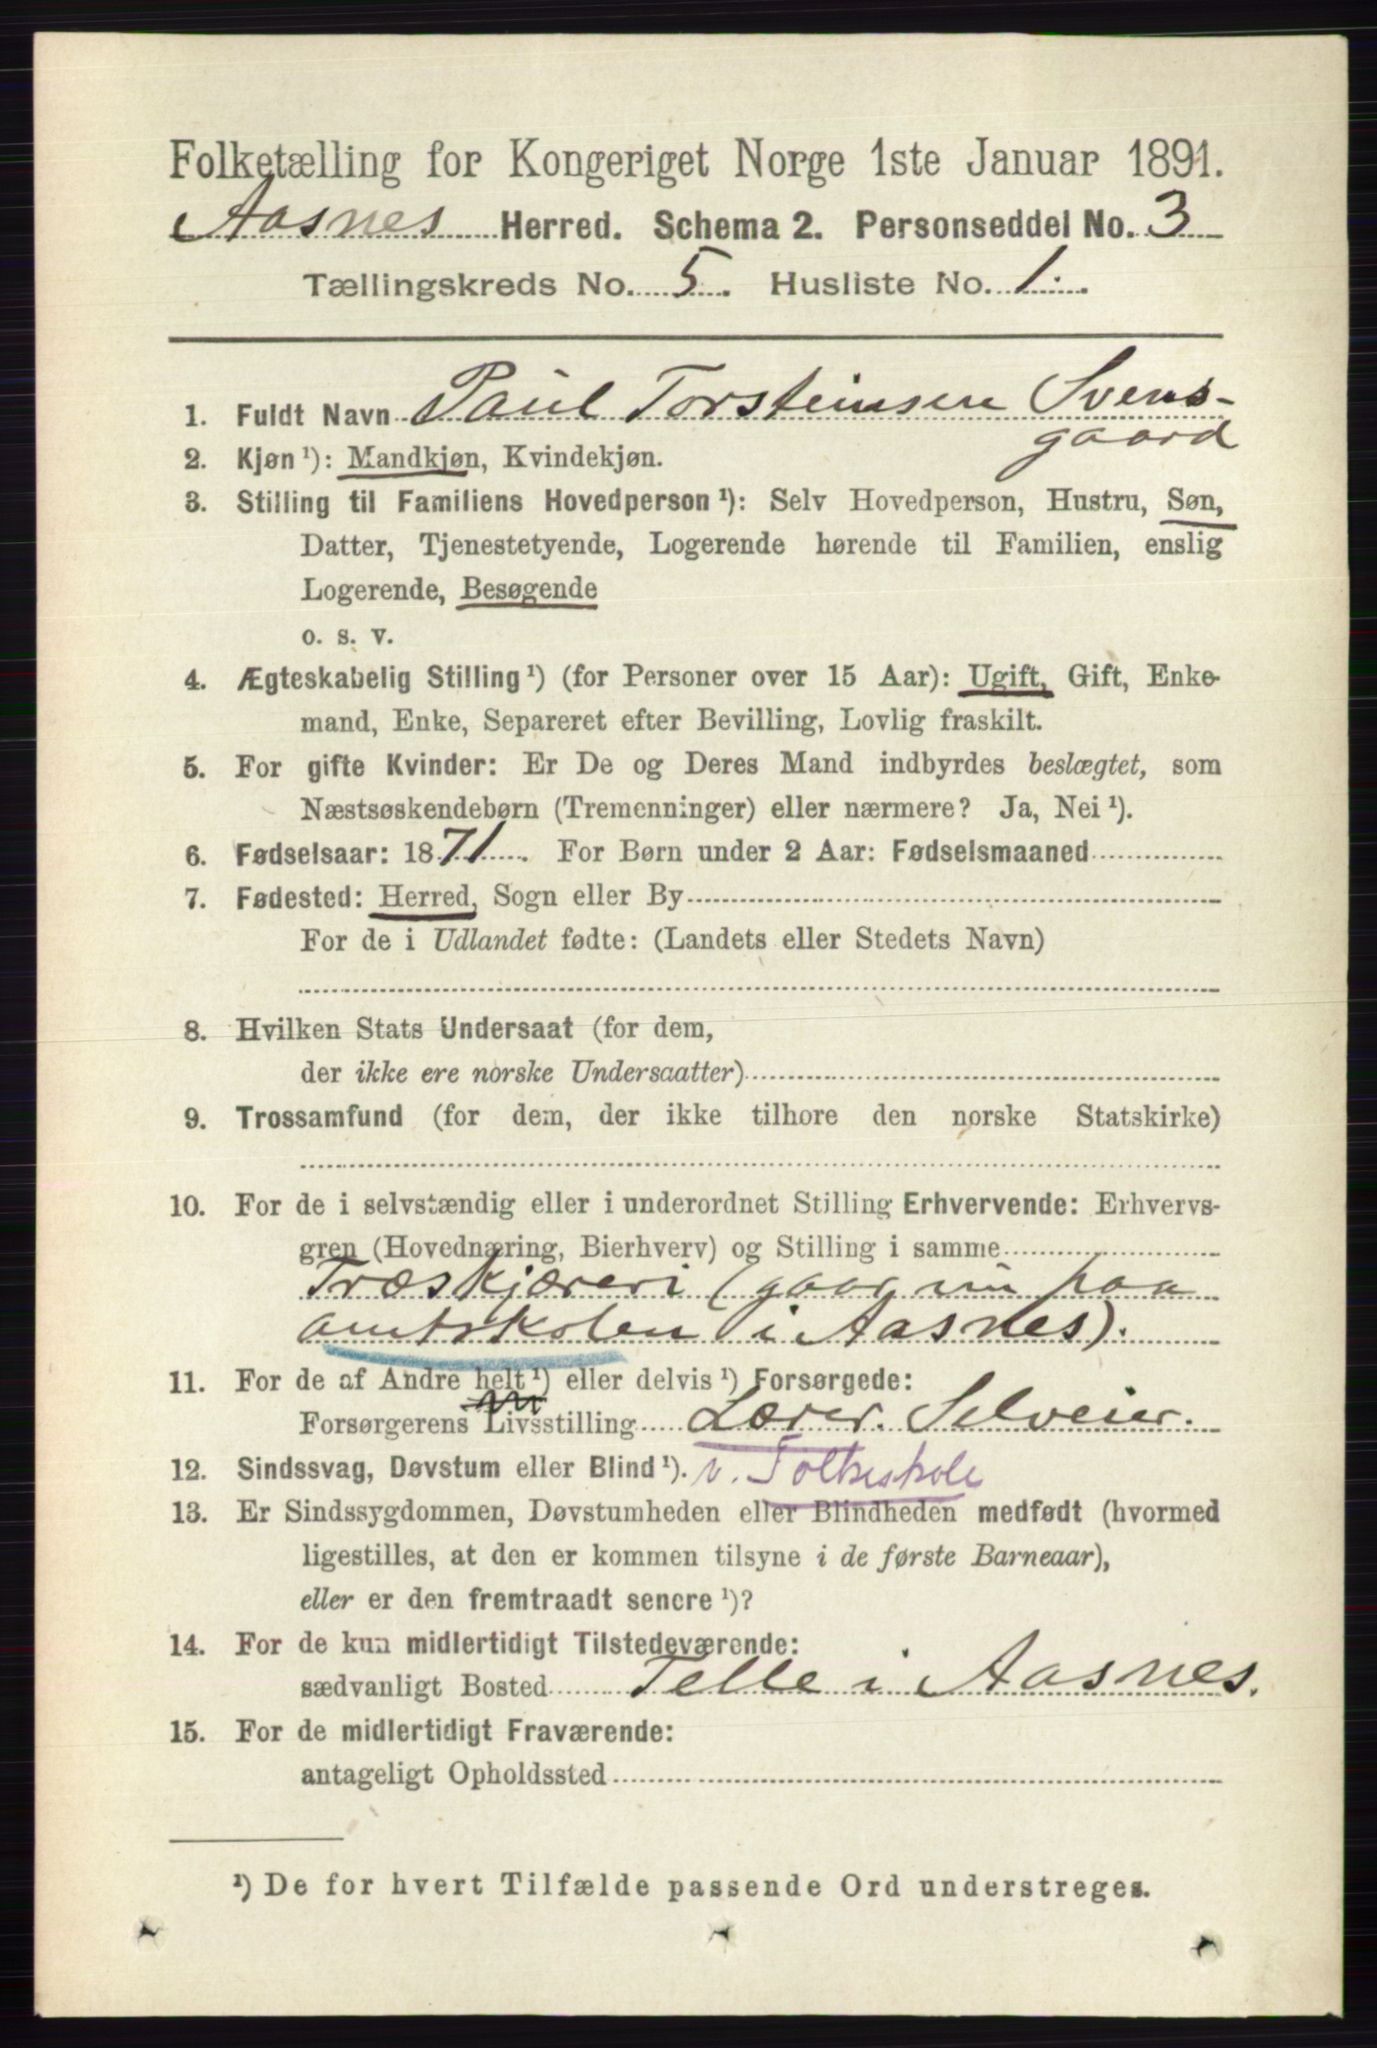 Folketælling for Kongeriget Norge 1ste Januar 1891.
Aasnes Herred. Schema 2. Personseddel No. 3
Tællingskreds No. 5. Husliste No. 1.
1. Fuldt Navn Paul Torsteinsen Svens-
gaard
2. Kjøn ¹): Mandkjøn, Kvindekjøn.
3. Stilling til Familiens Hovedperson ¹): Selv Hovedperson, Hustru, Søn,
Datter, Tjenestetyende, Logerende hørende til Familien, enslig
Logerende, Besøgende
o. s. v.
4. Ægteskabelig Stilling ¹) (for Personer over 15 Aar): Ugift, Gift, Enke-
mand, Enke, Separeret efter Bevilling, Lovlig fraskilt.
5. For gifte Kvinder: Er De og Deres Mand indbyrdes beslægtet, som
Næstsøskendebørn (Tremenninger) eller nærmere? Ja, Nei ¹).
6. Fødselsaar: 1871. For Børn under 2 Aar: Fødselsmaaned
7. Fødested: Herred, Sogn eller By
For de i Udlandet fødte: (Landets eller Stedets Navn)
8. Hvilken Stats Undersaat (for dem,
der ikke ere norske Undersaatter)
9. Trossamfund (for dem, der ikke tilhøre den norske Statskirke)
10. For de i selvstændig eller i underordnet Stilling Erhvervende: Erhvervs-
gren (Hovednæring, Bierhverv) og Stilling i samme
Træskjæreri (gaar nu paa
amtskolen i Aasnes).
11. For de af Andre helt ¹) eller delvis ¹) Forsørgede:
Forsørgerens Livsstilling Lærer. Selveier.
12. Sindssvag, Døvstum eller Blind ¹). v. Folkeskole
13. Er Sindssygdommen, Døvstumheden eller Blindheden medfødt (hvormed
ligestilles, at den er kommen tilsyne i de første Barneaar),
eller er den fremtraadt senere ¹)?
14. For de kun midlertidigt Tilstedeværende:
sædvanligt Bosted Telle i Aasnes.
15. For de midlertidigt Fraværende:
antageligt Opholdssted
¹) De for hvert Tilfælde passende Ord understreges.